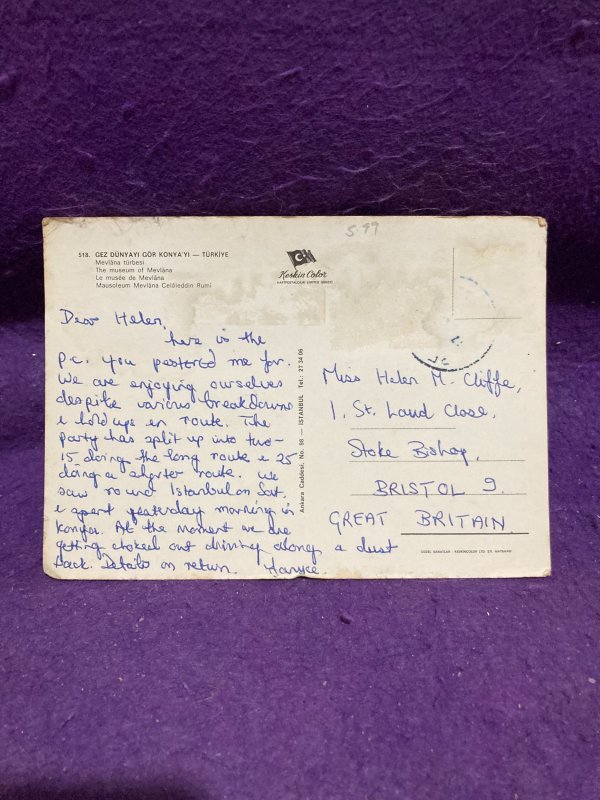 5.99
518. GEZ DÜNYAYI GÖR KONYA'YI — TÜRKİYE
Mevlâna türbesi
The museum of Mevlâna
Le musée de Mevlâna
Mausoleum Mevlâna Celâleddin Rumî
Keskin Color
KARTPOSTALCILIK LIMITED ŞİRKETİ
Dear Helen,
here is the
p.c. you pestered me for.
We are enjoying ourselves
despite various breakdowns
& hold ups en route. The
party has split up into two-
15 doing the long route & 25
doing a shorter route. We
saw round Istanbul on Sat.
& spent yesterday morning in
Konya. At the moment we are
getting choked out driving along a dust
track. Details on return.
Ankara Caddesi, No. 98 — İSTANBUL Tel.: 27 34 06
Miss Helen M. Cliffe,
1, St. Laud Close,
Stoke Bishop,
BRISTOL 9.
GREAT BRITAIN.